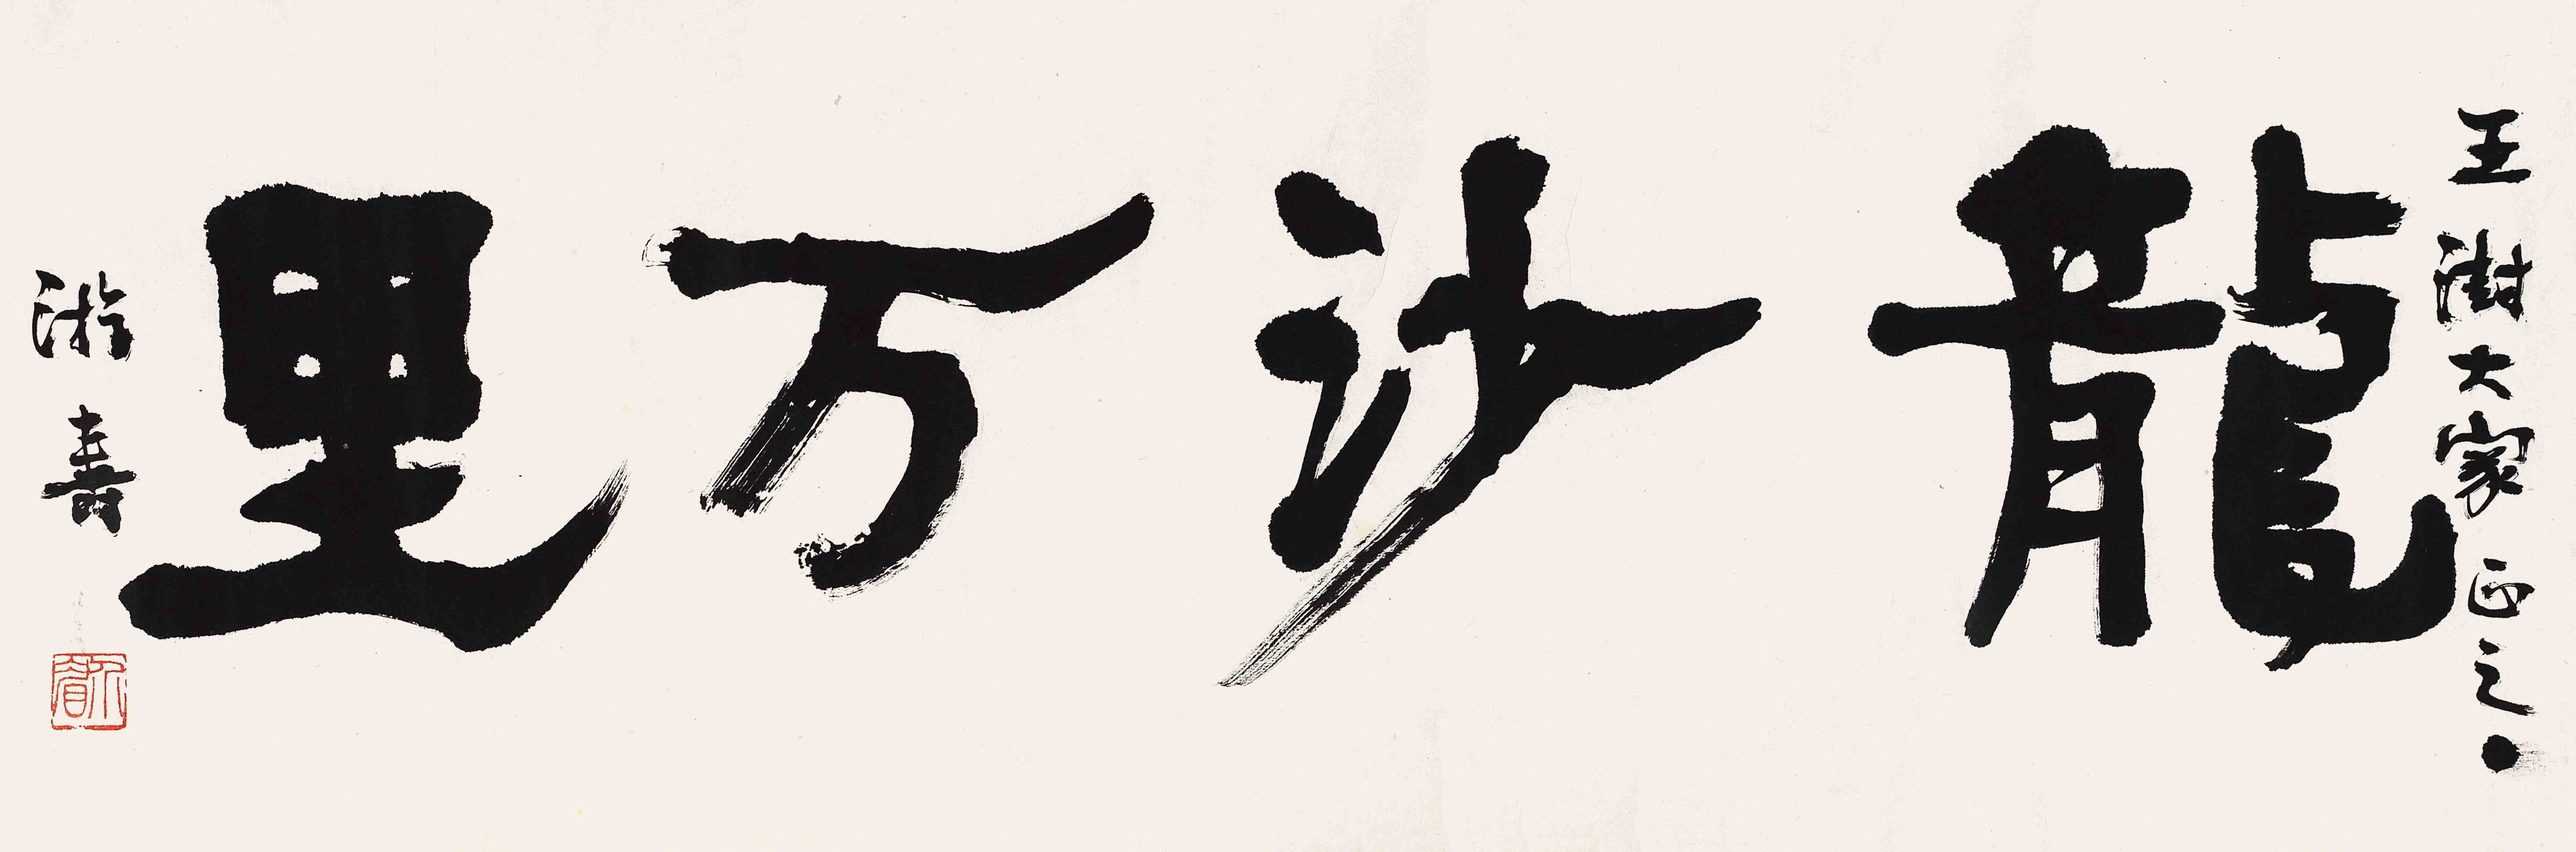 王澍大家正之
龍沙万里
游壽